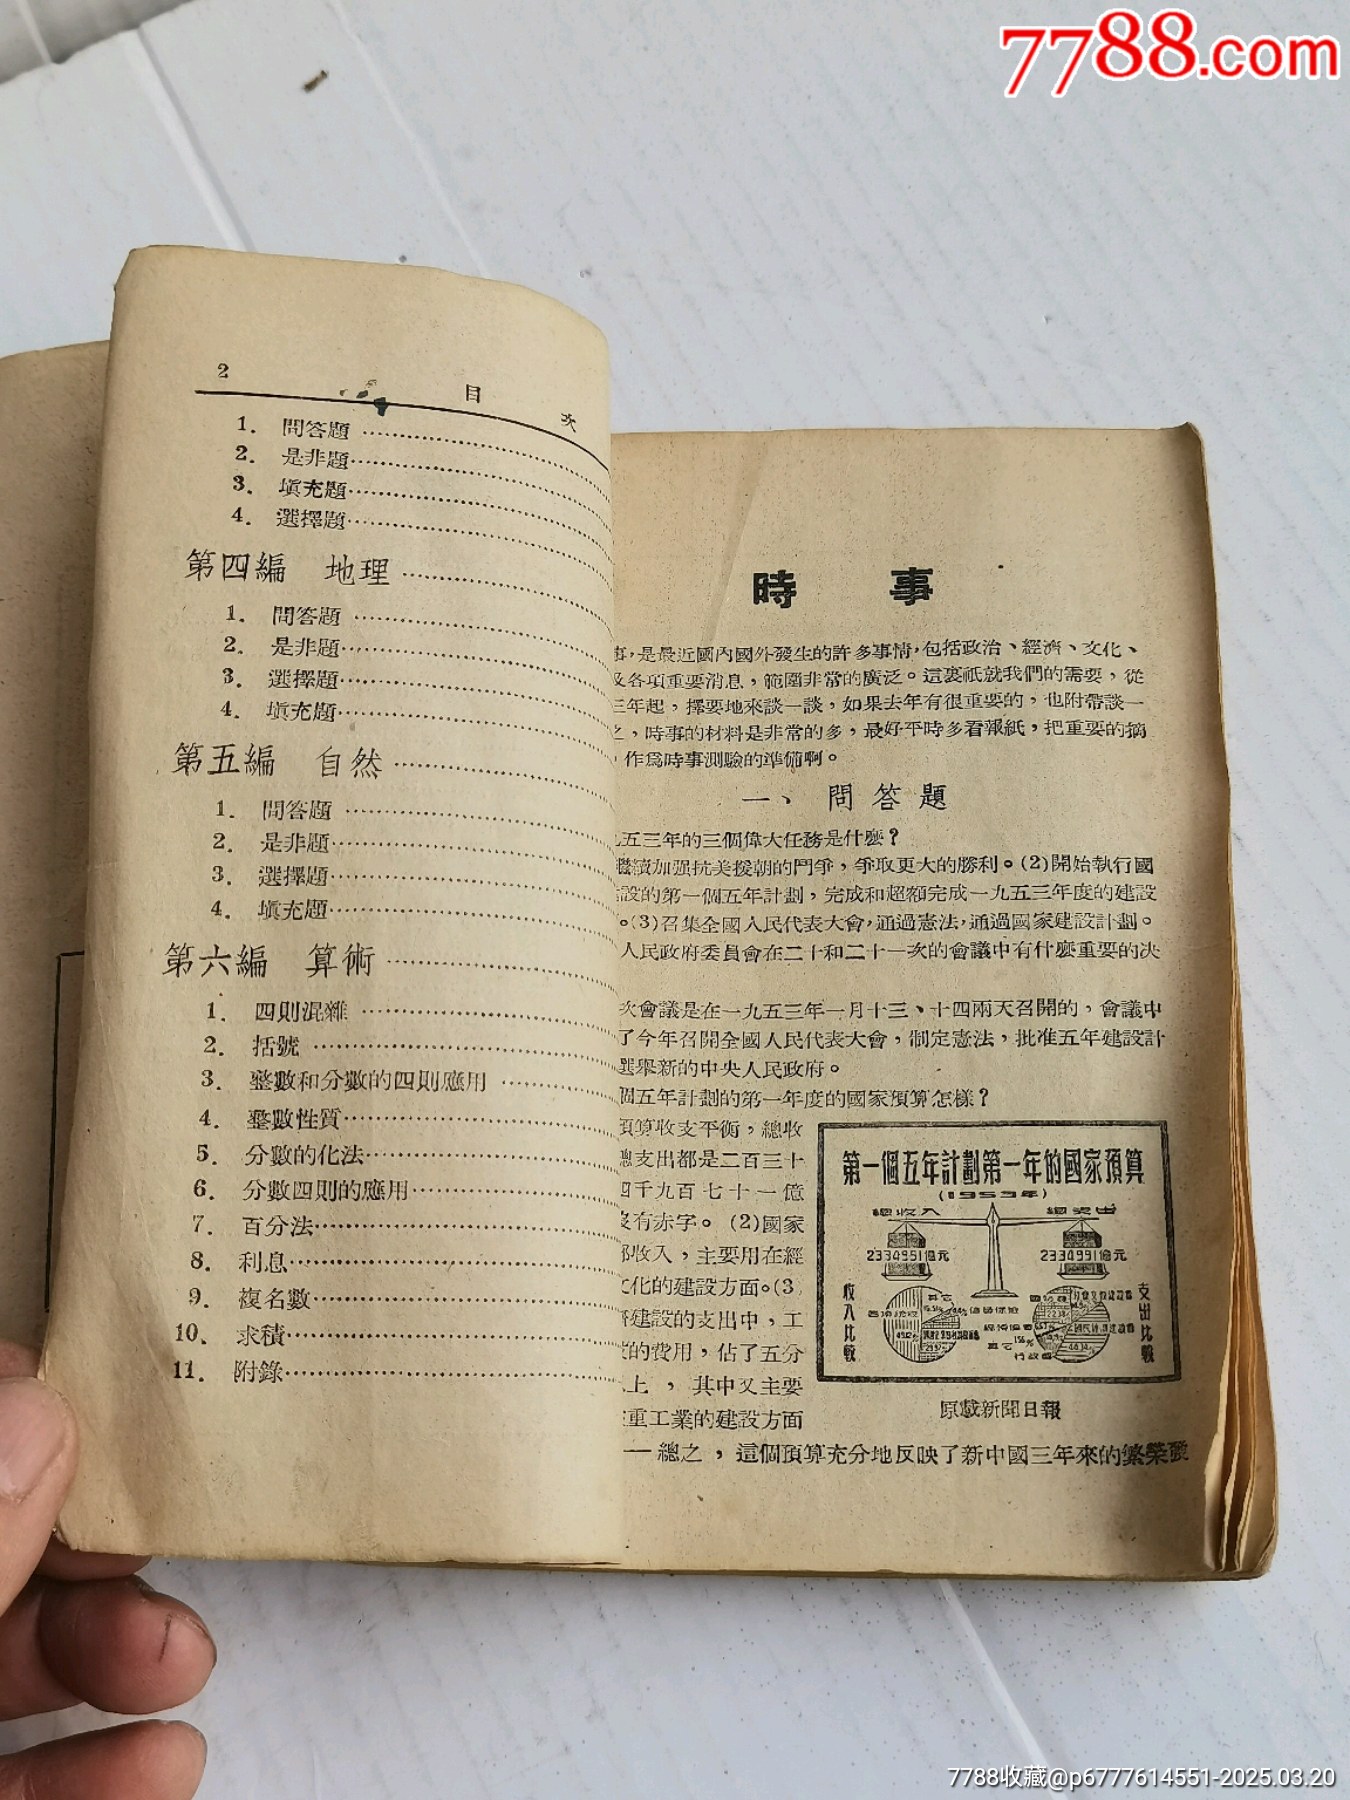 7788.com
2 目次
1. 問答題
2. 是非題
3. 填充題
4. 選擇題
第四編 地理
1. 問答題
2. 是非題
3. 選擇題
4. 填充題
第五編 自然
1. 問答題
2. 是非題
3. 選擇題
4. 填充題
第六編 算術
1. 四則混雜
2. 括號
3. 整數和分數的四則應用
4. 整數性質
5. 分數的化法
6. 分數四則的應用
7. 百分法
8. 利息
9. 複名數
10. 求積
11. 附錄
時事
事,是最近國內國外發生的許多事情,包括政治、經濟、文化、
及各項重要消息,範圍非常的廣泛。這裏祇就我們的需要,從
三年起,擇要地來談一談,如果去年有很重要的,也附帶談一
之,時事的材料是非常的多,最好平時多看報紙,把重要的摘
,作爲時事測驗的準備啊。
一、問答題
九五三年的三個偉大任務是什麽?
繼續加强抗美援朝的鬥爭,爭取更大的勝利。(2)開始執行國
設的第一個五年計劃,完成和超額完成一九五三年度的建設
。(3)召集全國人民代表大會,通過憲法,通過國家建設計劃。
人民政府委員會在二十和二十一次的會議中有什麽重要的决
次會議是在一九五三年一月十三、十四兩天召開的,會議中
了今年召開全國人民代表大會,制定憲法,批准五年建設計
選舉新的中央人民政府。
個五年計劃的第一年度的國家預算怎樣?
預算收支平衡,總收
總支出都是二百三十
四千九百七十一億
沒有赤字。(2)國家
部收入,主要用在經
文化的建設方面。(3)
濟建設的支出中,工
的費用,佔了五分
上,其中又主要
重工業的建設方面
—總之,這個預算充分地反映了新中國三年來的繁榮發
第一個五年計劃第一年的國家預算
(1953年)
總收入 總支出
2334991億元 2334991億元
收入比較
支出比較
原載新聞日報
7788收藏@p6777614551-2025.03.20